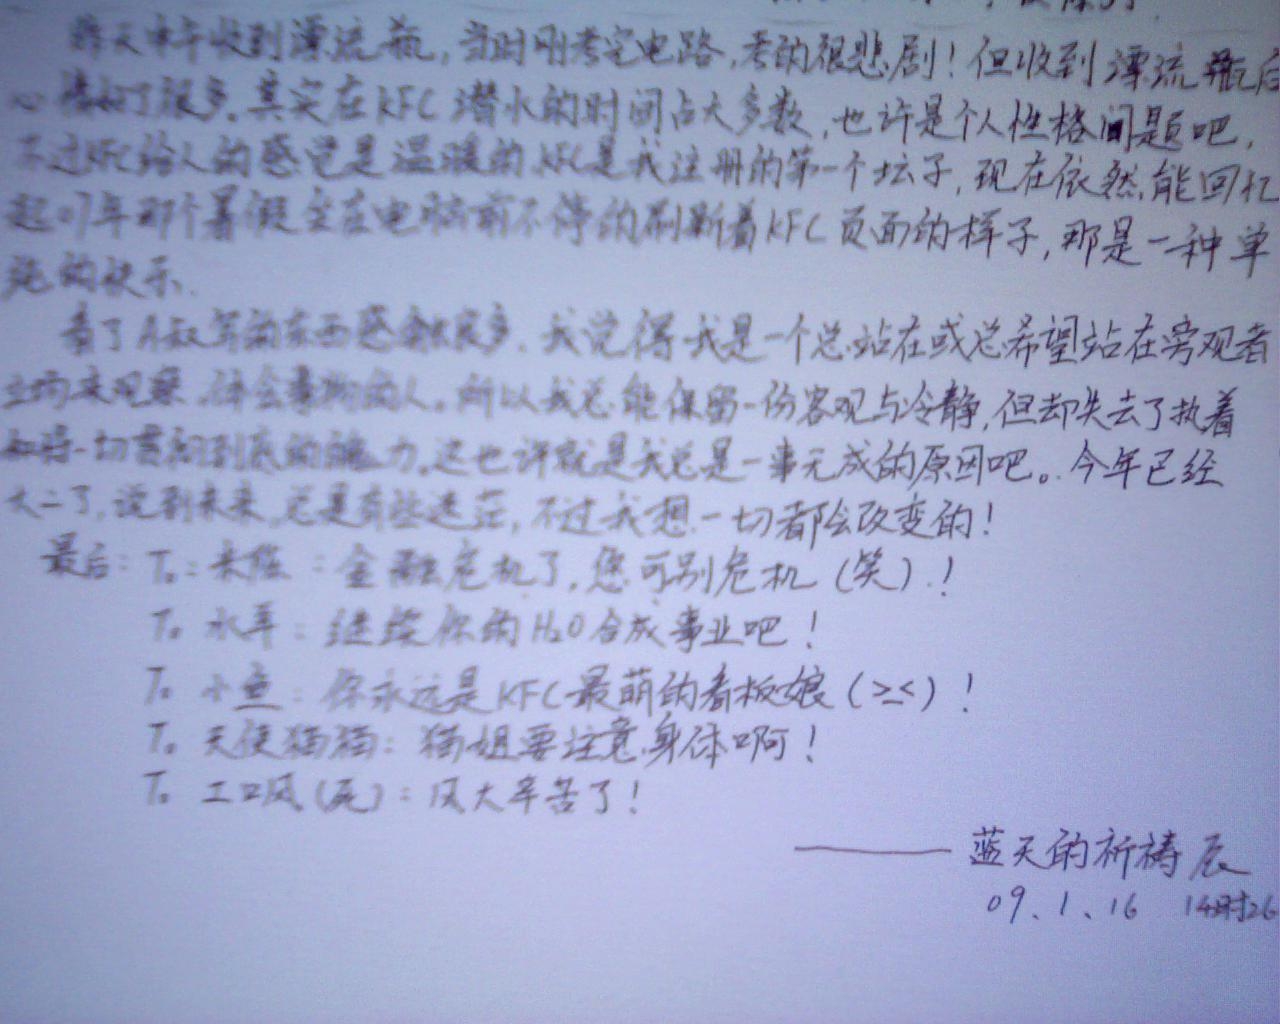 昨天中午收到漂流瓶，当时刚考完电路，考的很悲剧！但收到漂流瓶后
心情好了很多。其实在KFC潜水的时间占大多数，也许是个人性格问题吧，
不过KFC给人的感觉是温暖的，KFC是我注册的第一个坛子，现在依然能回忆
起07年那个暑假坐在电脑前不停的刷新着KFC页面的样子，那是一种单
纯的快乐.
看了A叔写的东西感触良多. 我觉得我是一个总站在或总希望站在旁观者
立场来观察、体会事物的人。所以我总能保留一份客观与冷静，但却失去了执着
和将一切贯彻到底的魄力，这也许就是我总是一事无成的原因吧。今年已经
大二了，说到未来，还是有些迷茫，不过我想一切都会改变的！
最后：To：：金融危机了，您可别危机（笑）！
To 水羊：继续你的H2O合成事业吧！
To 小鱼：你永远是KFC最萌的看板娘（><）！
To 天使猫猫：猫姐要注意身体啊！
To 工口风（死）：风大辛苦了！
——蓝天的祈祷 辰
09、1、16 14时26